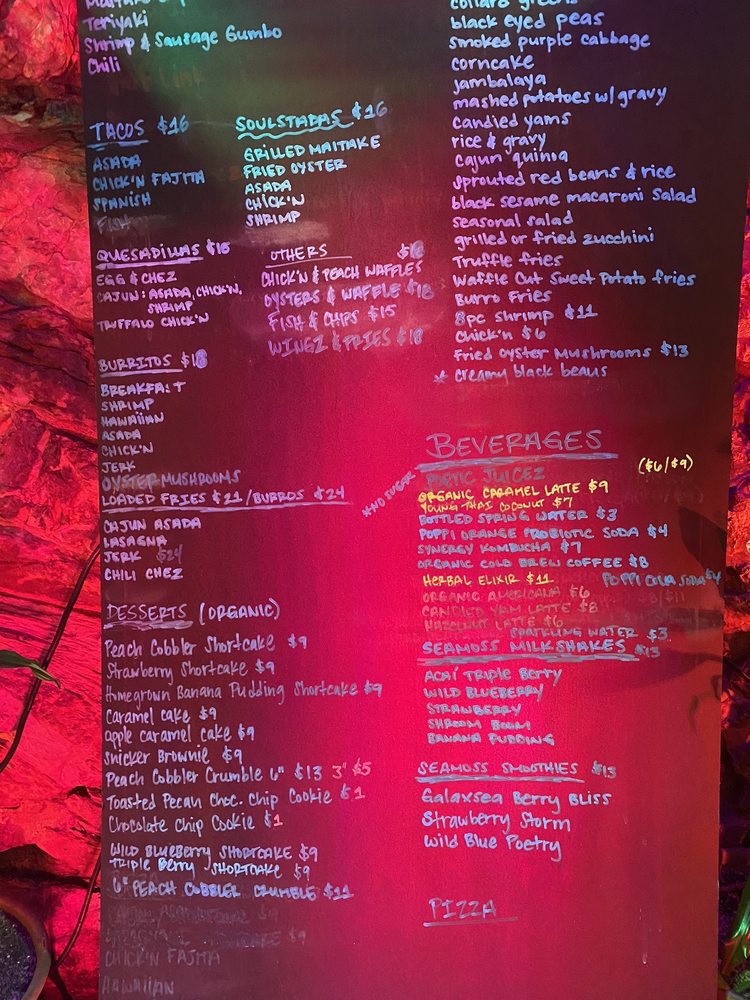 Teriyaki
Shrimp & Sausage Gumbo
Chili
TACOS $16
ASADA
CHICK'N FAJITA
SPANISH
FISH
SOULSTADAS $16
GRILLED MAITAKE
FRIED OYSTER
ASADA
CHICK'N
SHRIMP
QUESADILLAS
EGG & CHEZ
CAJUN: ASADA, CHICK'N,
SHRIMP
TRUFFALO CHICK'N
OTHERS
CHICK'N & PEACH WAFFLES
OYSTERS & WAFFLE $18
FISH & CHIPS $15
WINGZ & FRIES $18
BURRITOS
BREAKFAST
SHRIMP
HAWAIIAN
ASADA
CHICK'N
JERK
OYSTER MUSHROOMS
LOADED FRIES $21/BURROS $24
CAJUN ASADA
LASAGNA
JERK $24
CHILI CHEZ
DESSERTS (ORGANIC)
Peach Cobbler Shortcake $9
Strawberry Shortcake $9
Homegrown Banana Pudding Shortcake $9
Caramel cake $9
apple caramel cake $9
Snicker Brownie $9
Peach Cobbler Crumble 6" $13 3" $5
Toasted Pecan Choc. Chip Cookie $1
Chocolate Chip Cookie $1
WILD BLUEBERRY SHORTCAKE $9
TRIPLE BERRY SHORTCAKE $9
6" PEACH COBBLER CRUMBLE $11
CHICK'N FAJITA
HAWAIIAN
collard greens
black eyed peas
smoked purple cabbage
corncake
jambalaya
mashed potatoes w/ gravy
candied yams
rice & gravy
cajun quinoa
sprouted red beans & rice
black sesame macaroni salad
seasonal salad
grilled or fried zucchini
Truffle fries
Waffle Cut Sweet Potato fries
Burro Fries
8pc shrimp $11
Chick'n $6
Fried Oyster Mushrooms $13
* Creamy black beans
BEVERAGES
*NO SUGAR
POETIC JUICEZ ($6/$9)
ORGANIC CARAMEL LATTE $9
YOUNG THAI COCONUT $7
BOTTLED SPRING WATER $3
POPPI ORANGE PROBIOTIC SODA $4
SYNERGY KOMBUCHA $7
ORGANIC COLD BREW COFFEE $8
HERBAL ELIXIR $11 POPPI COLA SODA $4
ORGANIC AMERICANA $6
CANDIED YAM LATTE $8
HAZELNUT LATTE $6
SPARKLING WATER $3
SEAMOSS MILKSHAKES $13
ACAÍ TRIPLE BERRY
WILD BLUEBERRY
STRAWBERRY
SHROOM BOOM
BANANA PUDDING
SEAMOSS SMOOTHIES $13
Galaxsea Berry Bliss
Strawberry Storm
Wild Blue Poetry
PIZZA